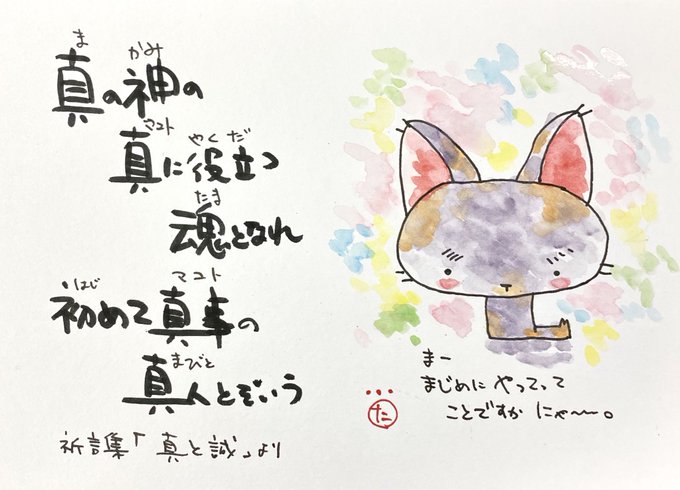 ま かみ
真の神の
マコト やくだ
真に役立つ
たま
魂となれ
はじ マコト
初めて真事の
まびと
真人とぞいう
祈言集「真と誠」より
まー
まじめに やってって
ことですか にゃ〜〜。
た